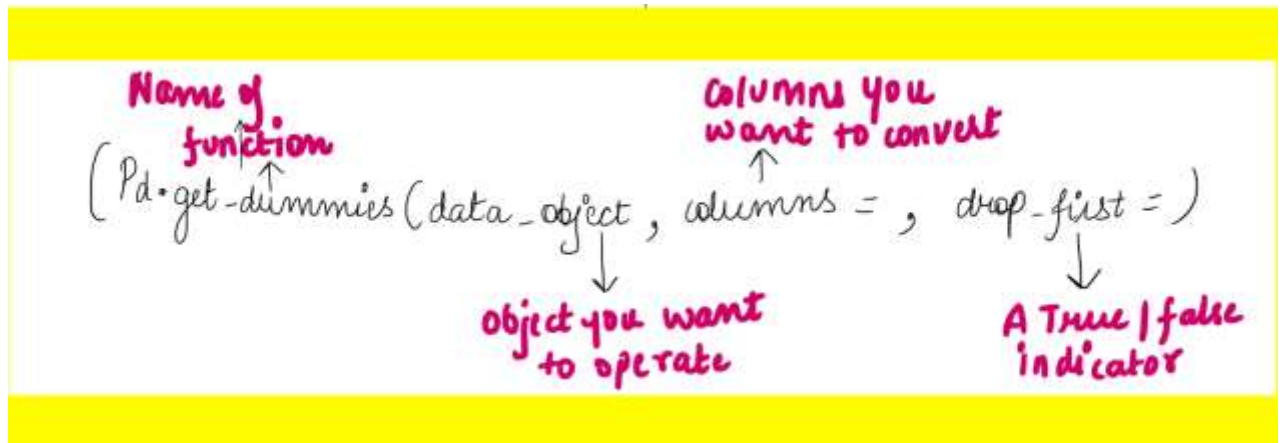 Name of
function
Columns you
want to convert
(Pd.get-dummies(data-object, columns = , drop-first = )
Object you want
to operate
A True/false
indicator